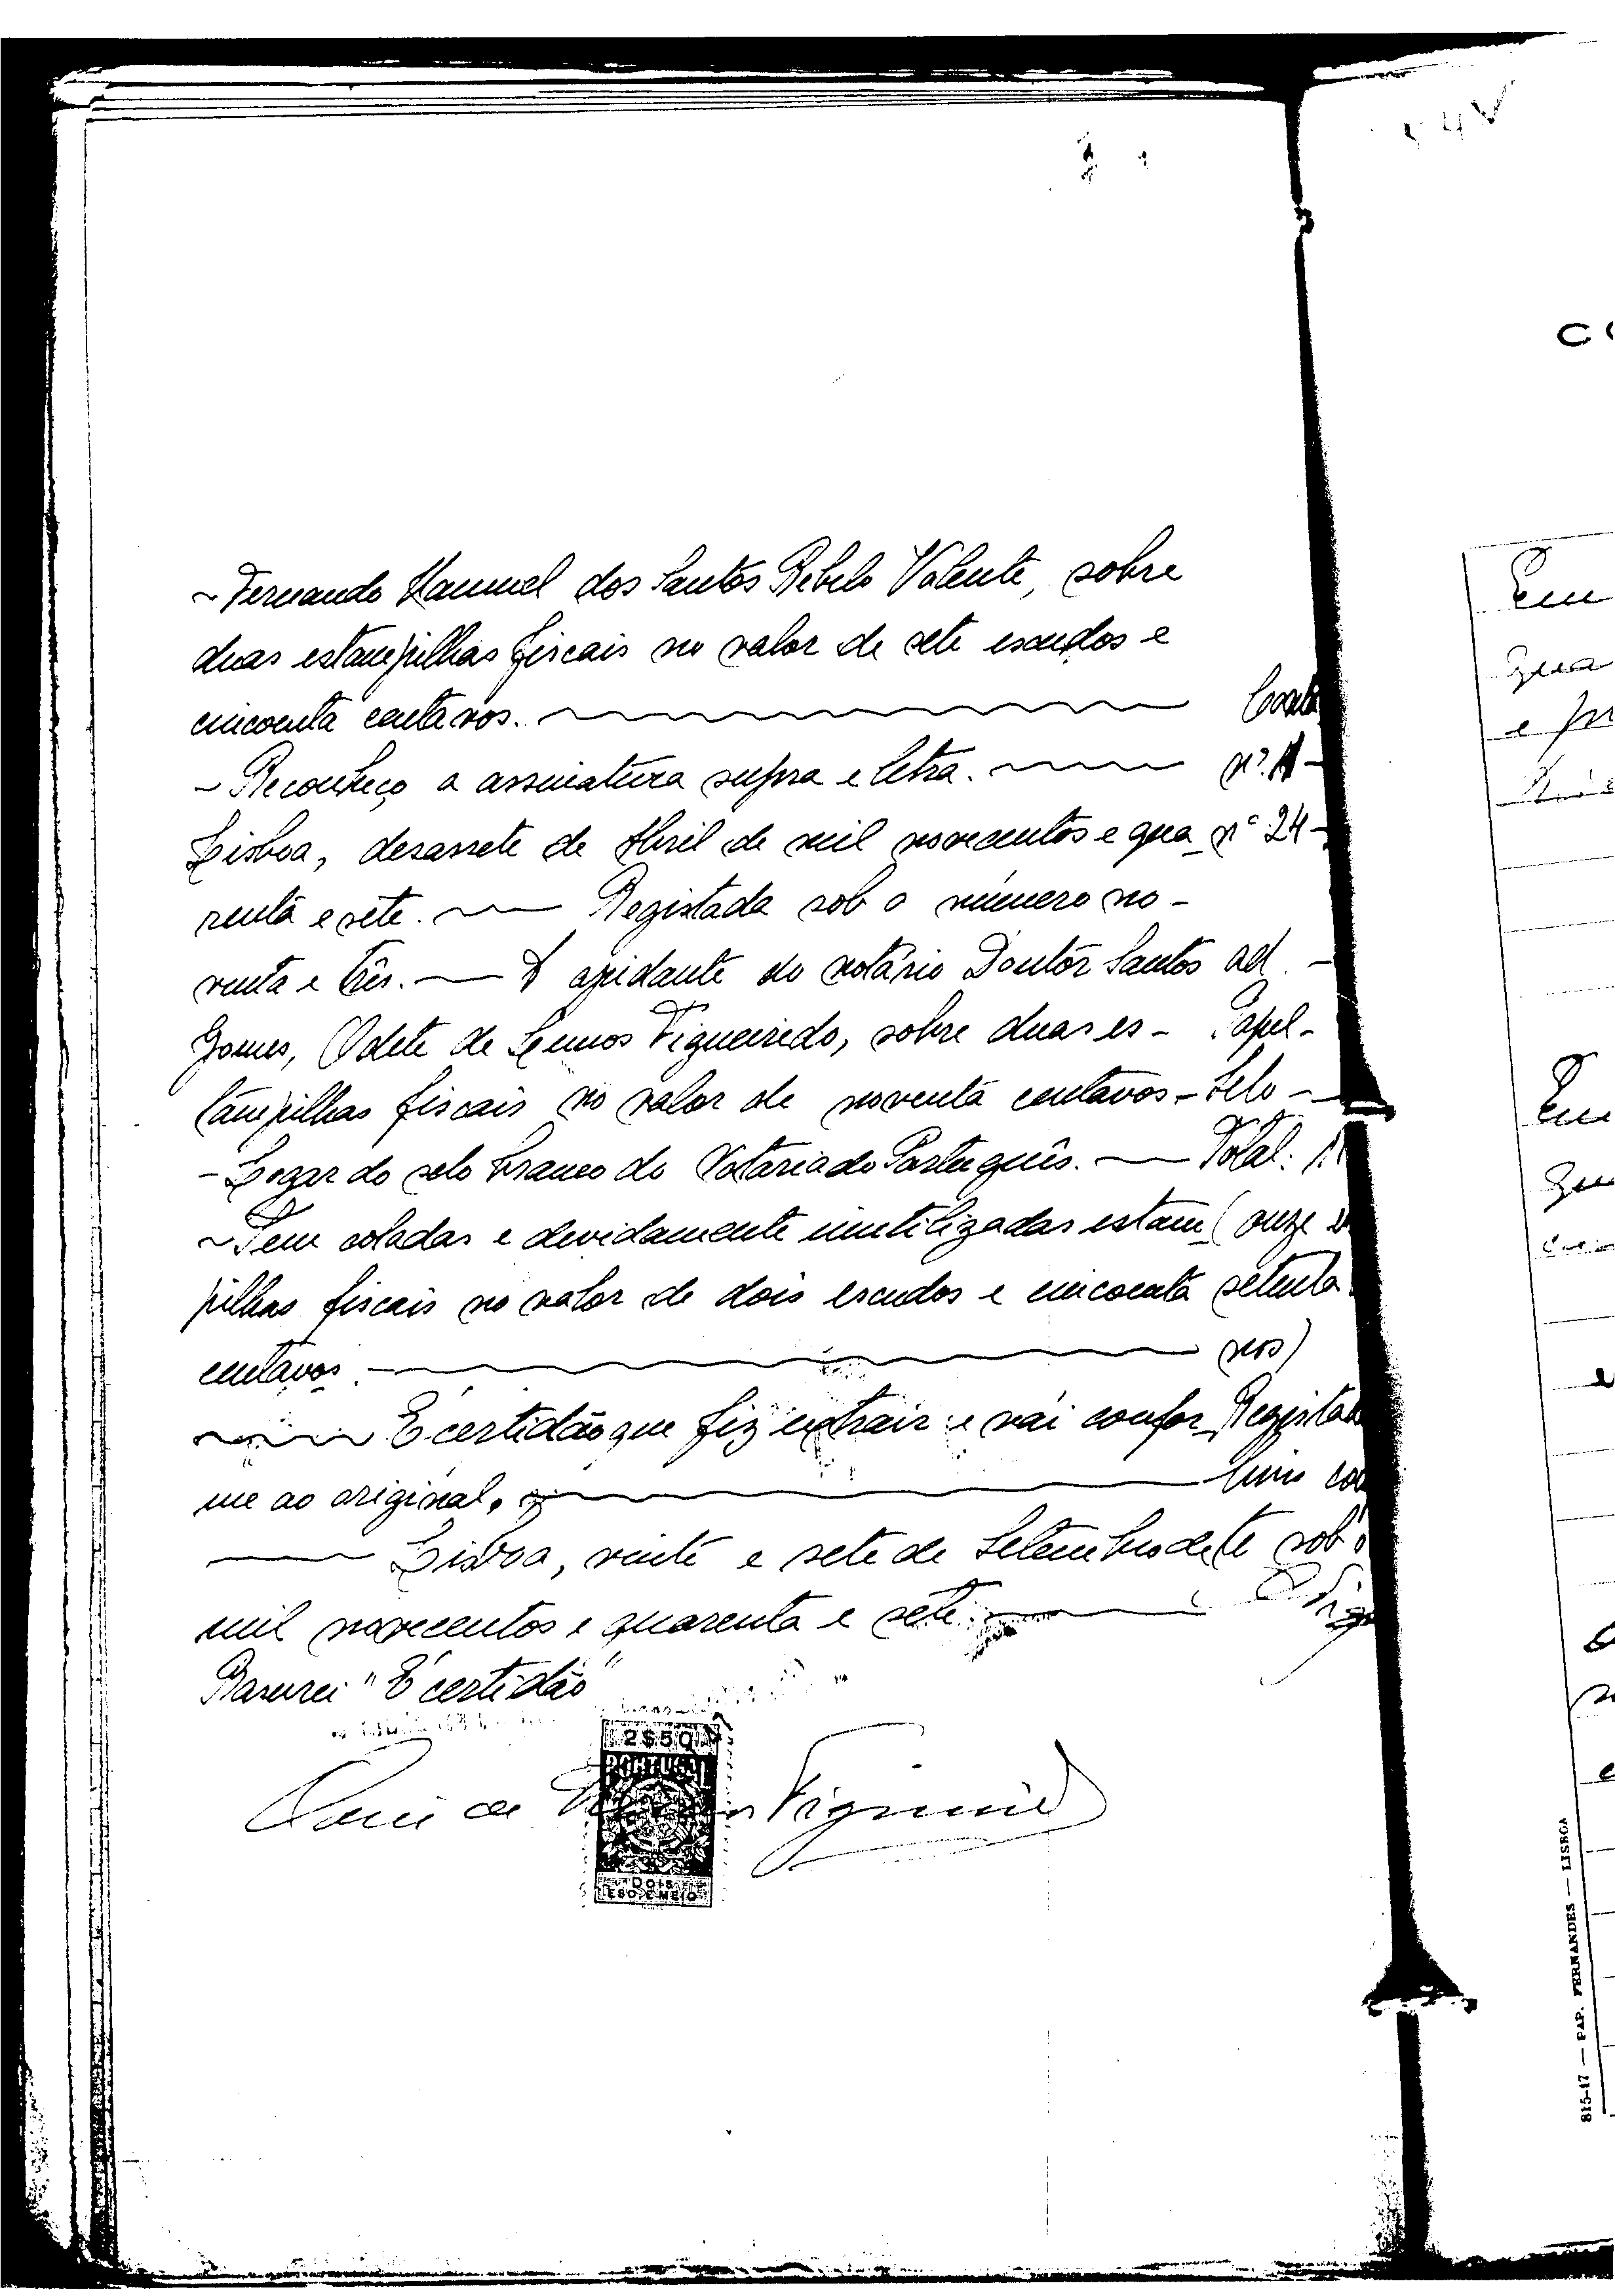 ~ Fernando Manuel dos Santos Rebelo Valente, sobre
duas estampilhas fiscais no valor de sete escudos e
cincoenta centavos.
- Reconheço a assinatura supra e letra. nº.
Lisboa, desassete de Abril de mil novecentos e qua_ nº 24-
renta e sete. Registada sob o número no-
venta e três. — A ajudante do notário Doutôr Santos ad. -
Gomes, Odete de Lemos Figueiredo, sobre duas es- Papel -
tampilhas fiscais no valor de noventa centavos - Selo -
- Logar do selo branco do Notariado Português. — Total:
~ Tem coladas e devidamente inutilizadas estam_ (onze
pilhas fiscais no valor de dois escudos e cincoenta setenta
centavos. vos)
É certidão que fiz extrair e vai confor_ Regista
me ao original. livro
Lisboa, vinte e sete de Setembro de te sob
mil novecentos e quarenta e sete.
Rasurei "É certidão"
2$50
PORTUGAL
DOIS
ESC. E MEIO
de Figueiredo
C
Em
e
Em
815-47 — PAP. FERNANDES — LISBOA